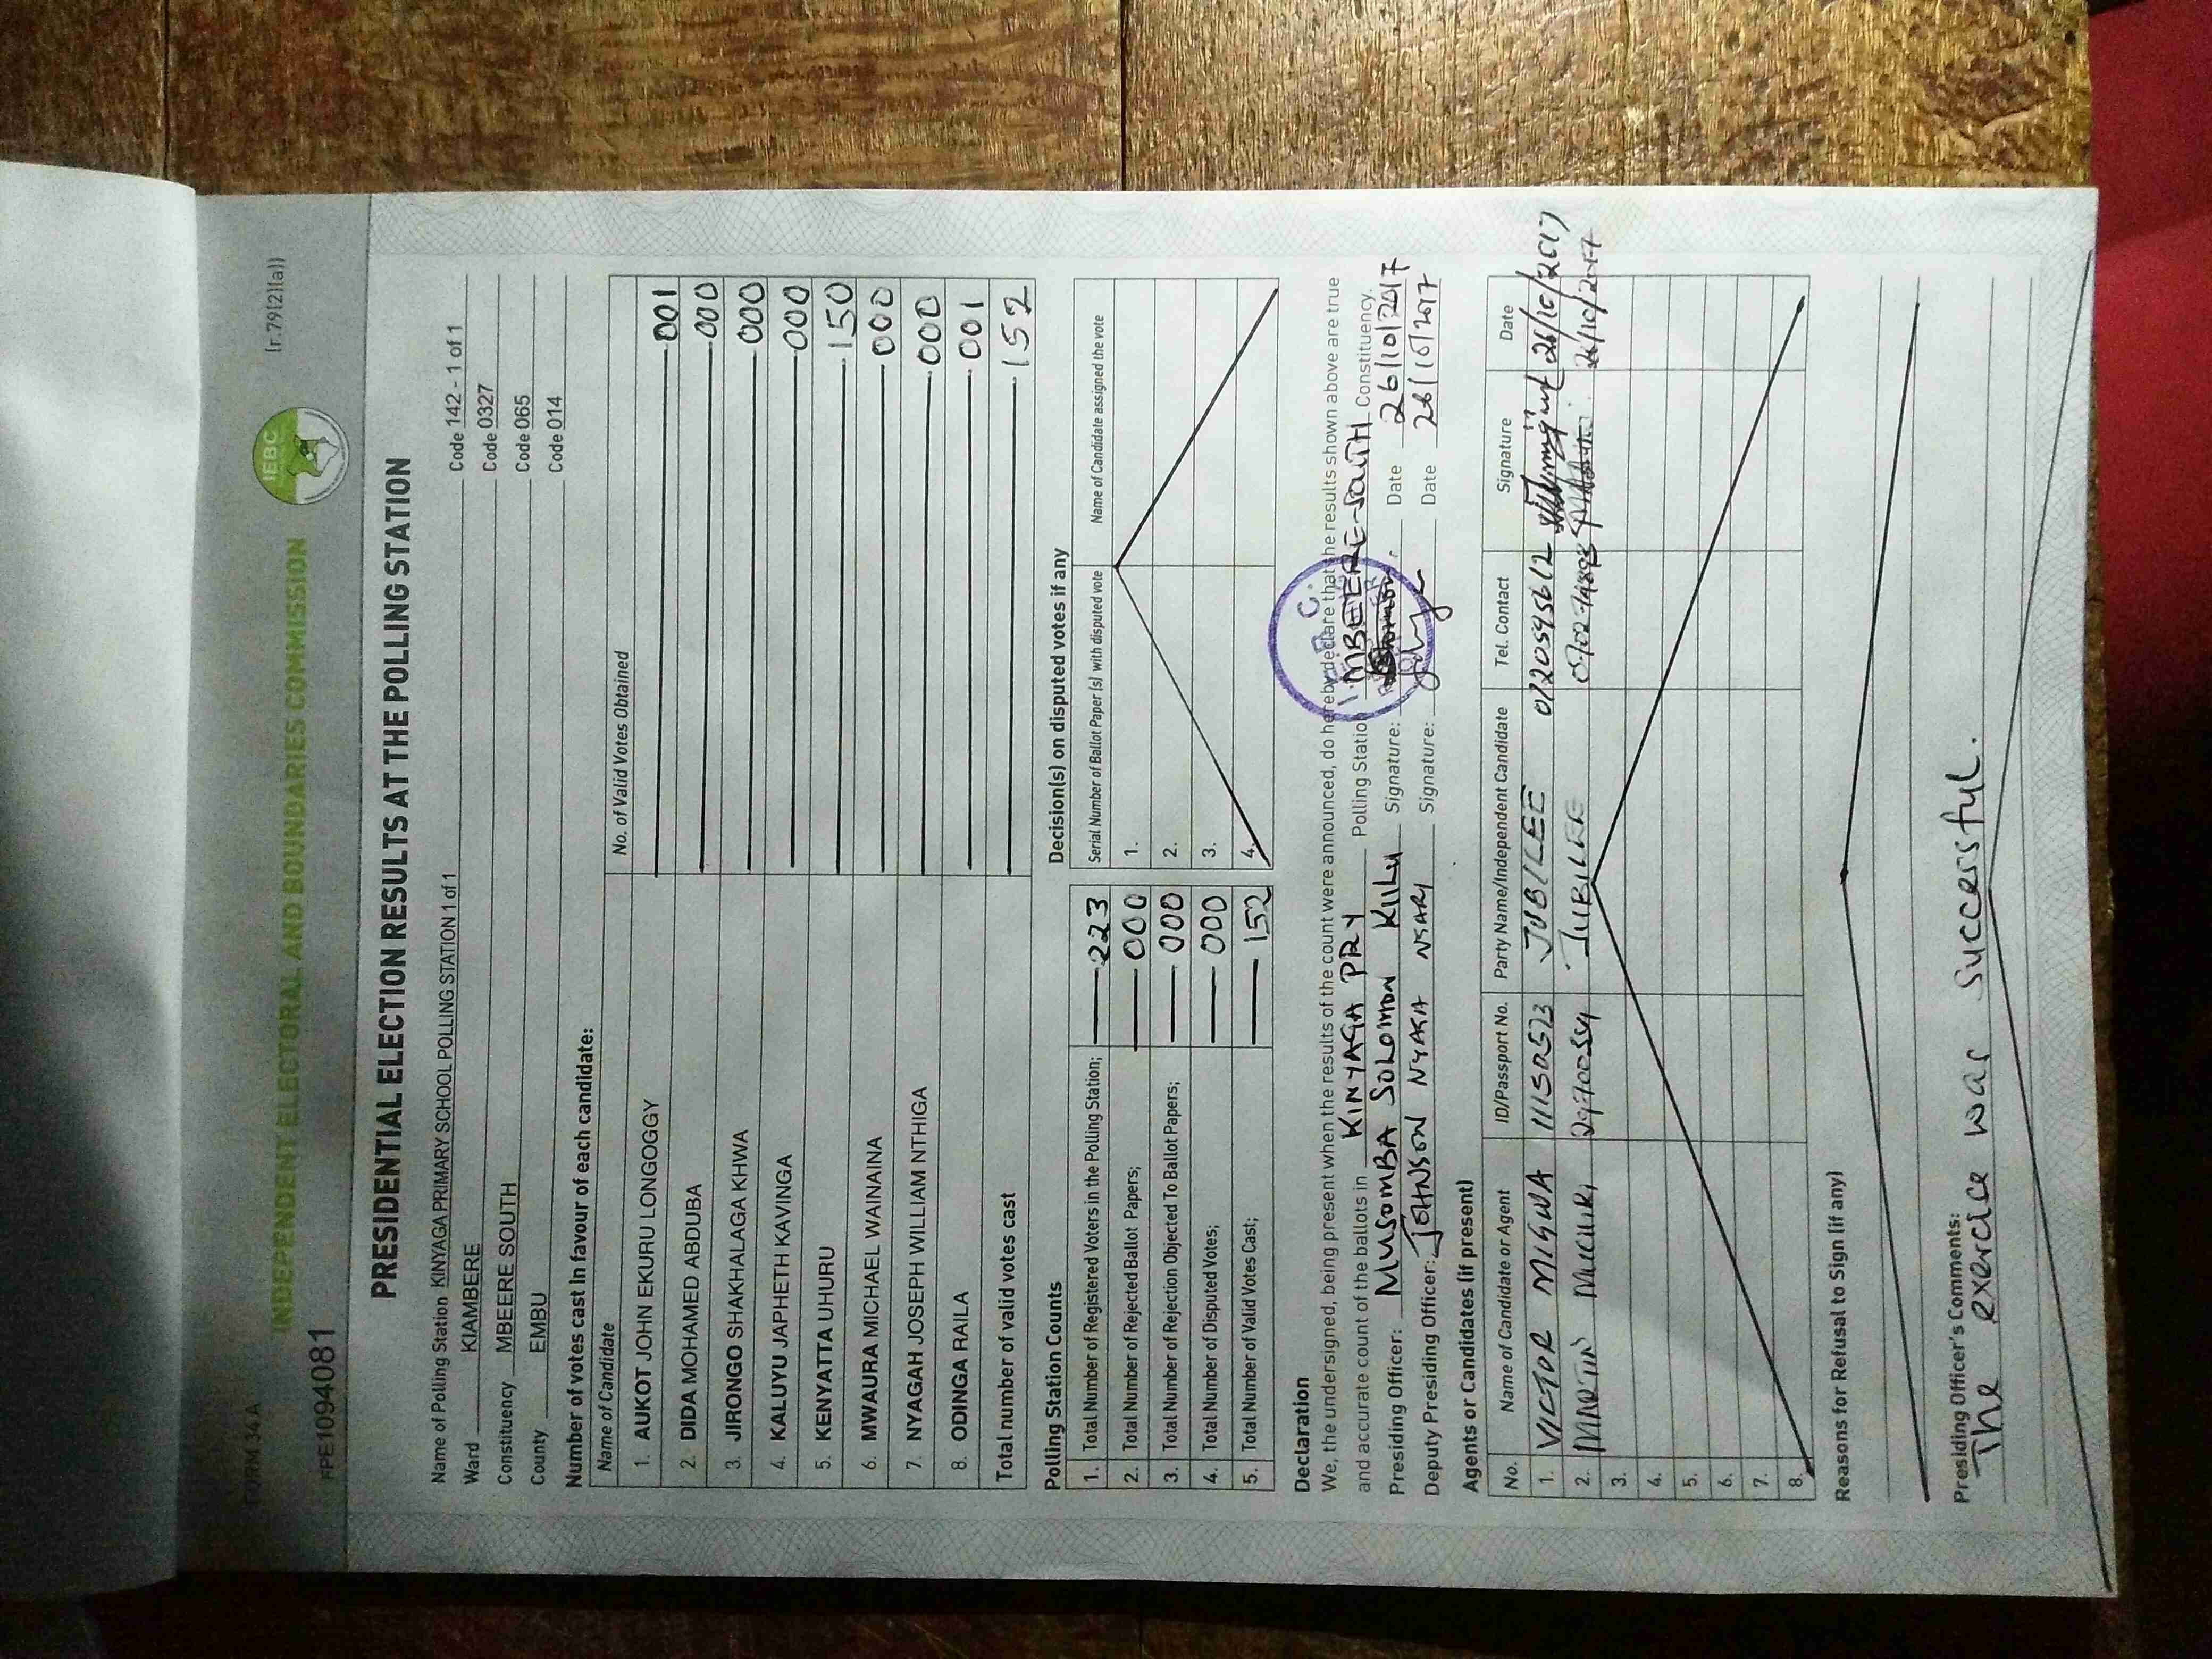 FORM 34 A
[r.79(2)(a)]
INDEPENDENT ELECTORAL AND BOUNDARIES COMMISSION
IEBC
FPE1094081
PRESIDENTIAL ELECTION RESULTS AT THE POLLING STATION
Name of Polling Station KINYAGA PRIMARY SCHOOL POLLING STATION 1 of 1 Code 142 - 1 of 1
Ward KIAMBERE Code 0327
Constituency MBEERE SOUTH Code 065
County EMBU Code 014
Number of votes cast in favour of each candidate:
Name of Candidate No. of Valid Votes Obtained
1. AUKOT JOHN EKURU LONGOGGY 001
2. DIDA MOHAMED ABDUBA 000
3. JIRONGO SHAKHALAGA KHWA 000
4. KALUYU JAPHETH KAVINGA 000
5. KENYATTA UHURU 150
6. MWAURA MICHAEL WAINAINA 000
7. NYAGAH JOSEPH WILLIAM NTHIGA 000
8. ODINGA RAILA 001
Total number of valid votes cast 152
Polling Station Counts
1. Total Number of Registered Voters in the Polling Station; 223
2. Total Number of Rejected Ballot Papers; 000
3. Total Number of Rejection Objected To Ballot Papers; 000
4. Total Number of Disputed Votes; 000
5. Total Number of Valid Votes Cast; 152
Decision(s) on disputed votes if any
Serial Number of Ballot Paper (s) with disputed vote Name of Candidate assigned the vote
1.
2.
3.
4.
Declaration
We, the undersigned, being present when the results of the count were announced, do hereby declare that the results shown above are true
and accurate count of the ballots in KINYAGA PRY Polling Station MBEERE SOUTH Constituency.
Presiding Officer: MUSOMBA SOLOMON KILU Signature: Date 26/10/2017
Deputy Presiding Officer: JOHNSON NYAGA NSARI Signature: Date 26/10/2017
Agents or Candidates (if present)
No. Name of Candidate or Agent ID/Passport No. Party Name/Independent Candidate Tel. Contact Signature Date
1. VICTOR MIGWA JUBILEE 26/10/2017
2. MARTIN MUCHIRI JUBILEE 26/10/2017
3.
4.
5.
6.
7.
8.
Reasons for Refusal to Sign (if any)
Presiding Officer's Comments:
The exercice was successful.